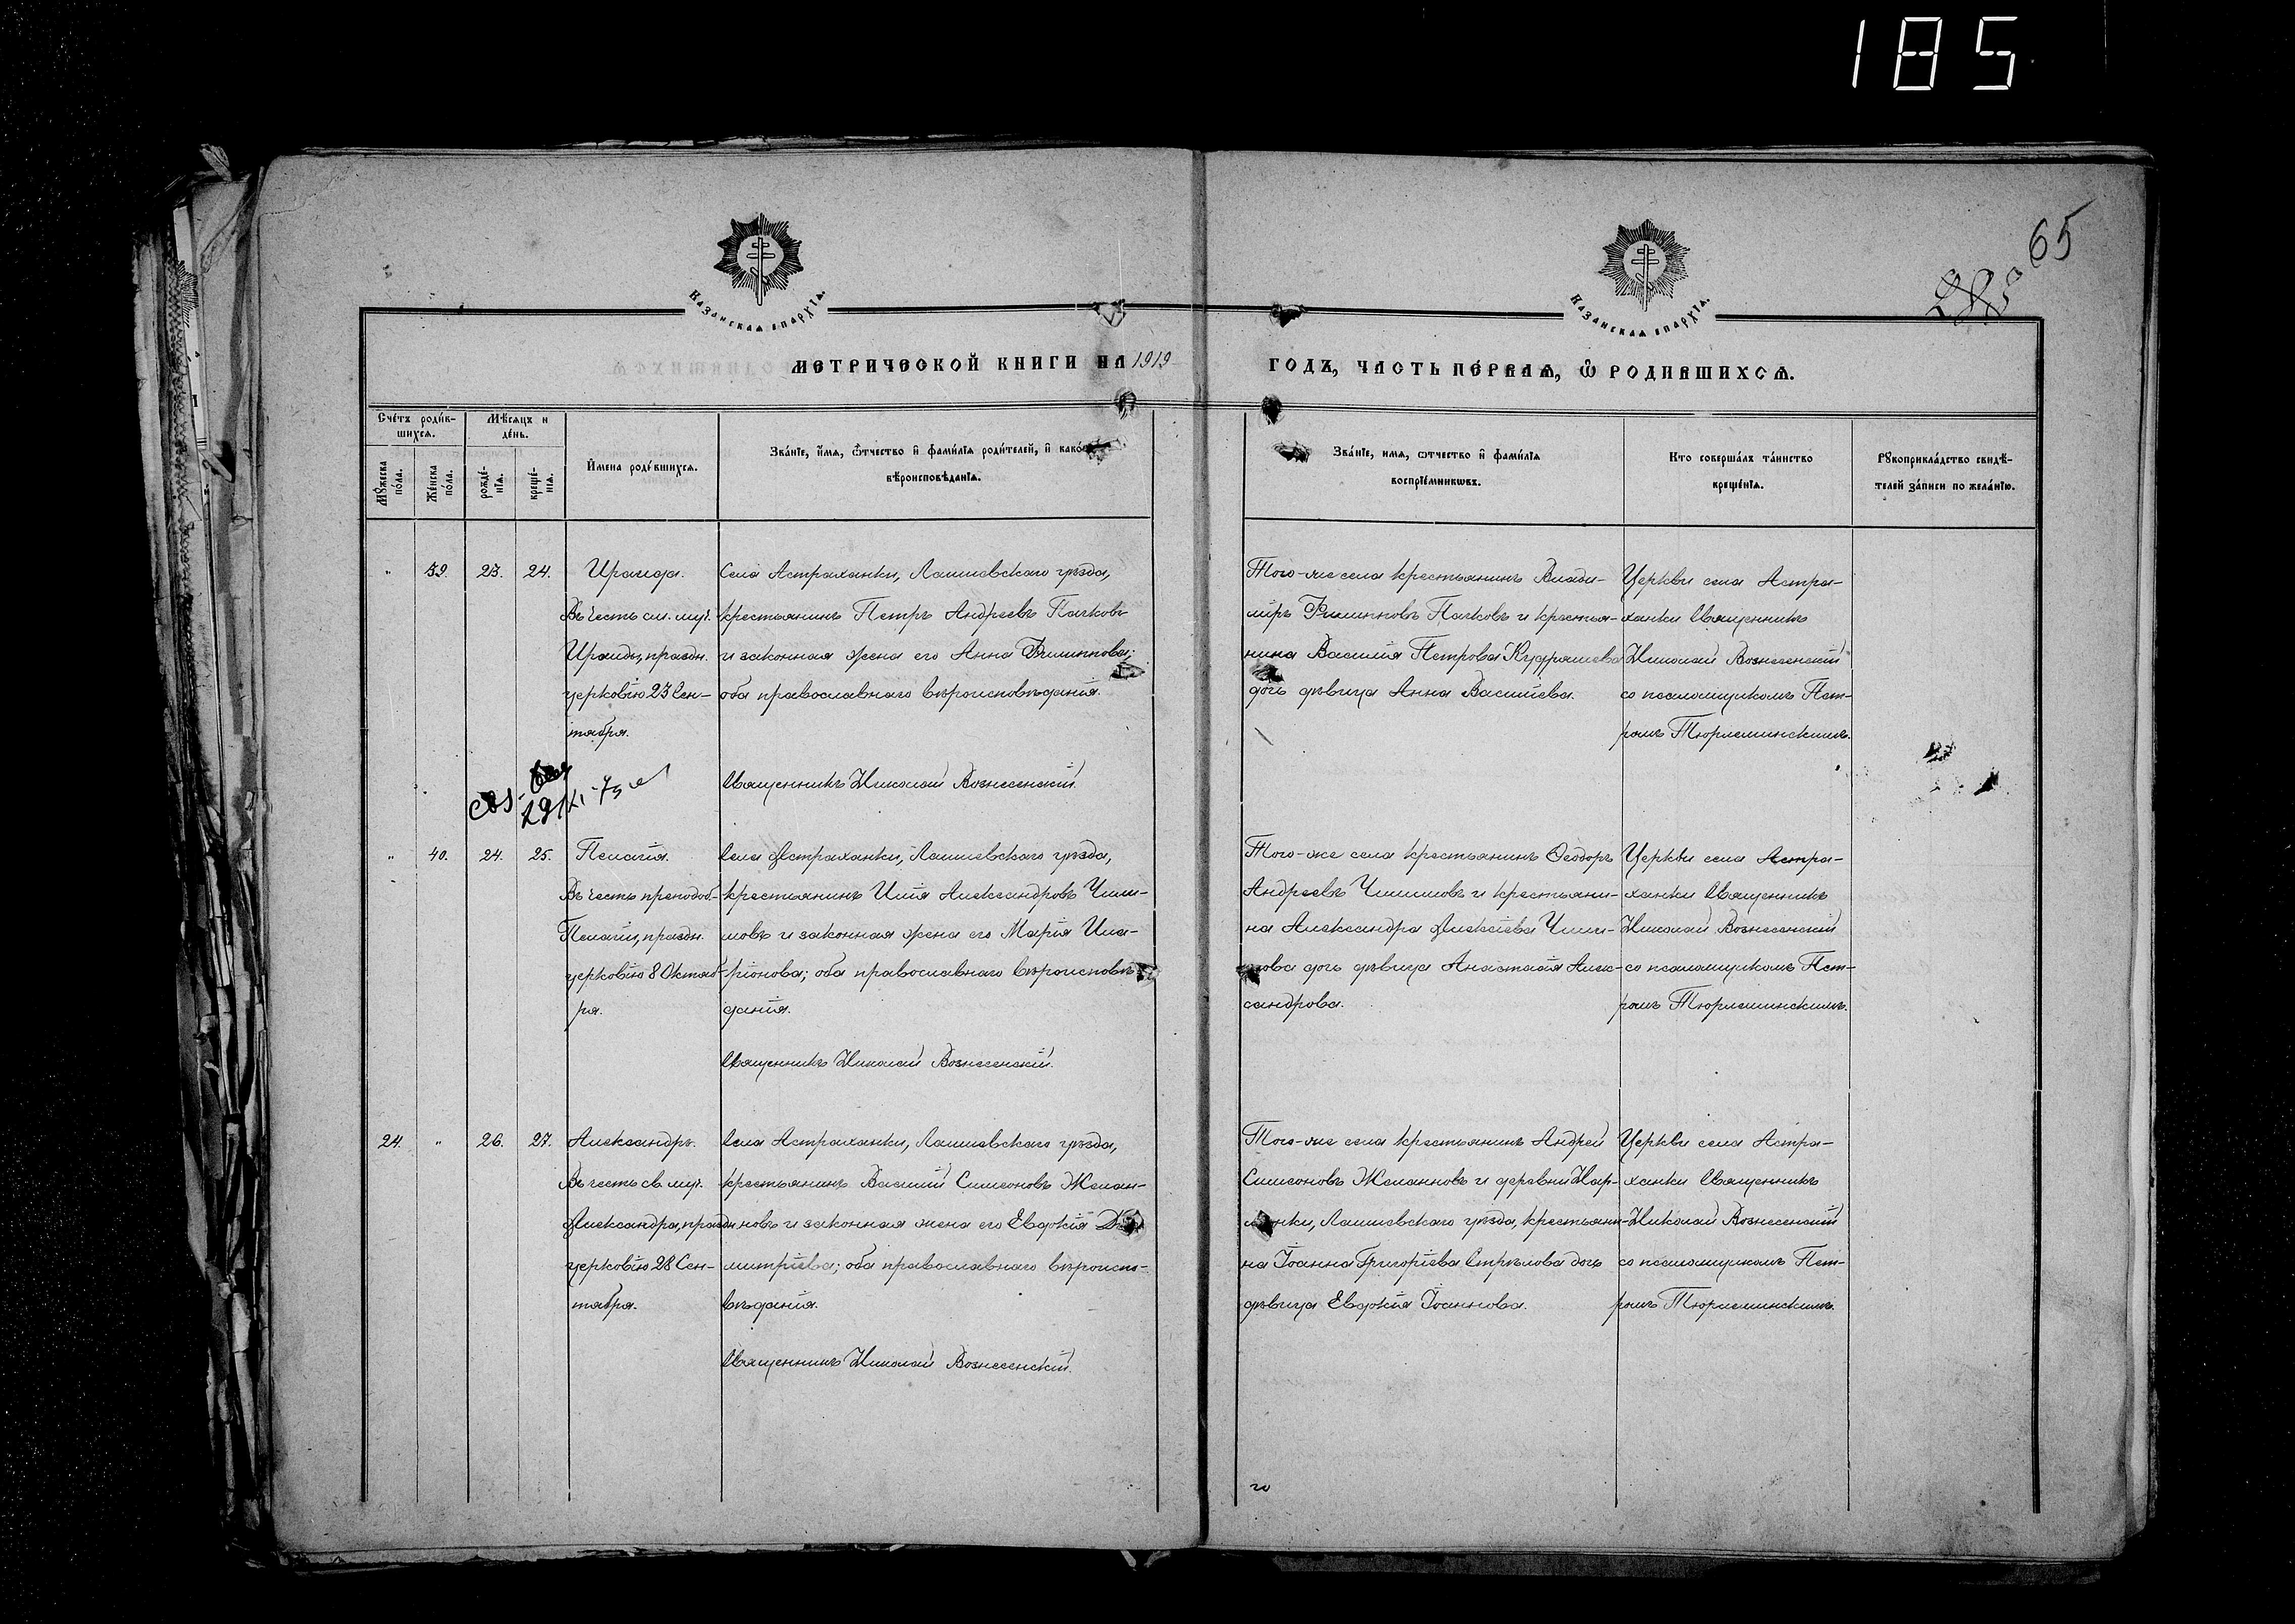 185
65
Казанская епархїа.
Казанская епархїа.
МЕТРИЧЕСКОЙ КНИГИ НА 1919
ГОДЪ, ЧАСТЬ ПЕ́РВАѦ, Ѽ РОДИВШИХСѦ.
Сче́тъ роди́в-
шихсѧ.
Мѣ́сѧцъ и
де́нь.
Мꙋ́жеска
по́ла.
Же́нска
по́ла.
рожде́-
нїѧ.
креще́-
нїѧ.
И҆мена роди́вшихсѧ.
Зва́нїе, и҆́мѧ, ѻ҆́тчество и҆ фами́лїѧ роди́телей, и҆ како́
вѣ́роисповѣданїѧ.
Зва́нїе, имѧ, ѻтчество и҆ фами́лїѧ
воспрїе́мникѡвъ.
Кто соверша́лъ та́инство
креще́нїѧ.
Рꙋкоприкла́дство свидѣ́-
телей за́писи по жела́нїю.
" 39. 23. 24.
Ираида.
Въ честь св. муч.
Ираиды, праздн.
церковію 23 Сен-
тября.
Села Астраханки, Лаишевскаго уѣзда,
крестьянинъ Петръ Андреевъ Палковъ
и законная жена его Анна Филиппова;
оба православнаго вѣроисповѣданія.
Священникъ Николай Вознесенскій.
Того-же села крестьянинъ Влади-
міръ Филипповъ Палковъ и крестья-
нина Василія Петрова Кудряшева
дочь дѣвица Анна Васильева.
Церкви села Астра-
ханки Священникъ
Николай Вознесенскій
со псаломщикомъ Пет-
ромъ Тюрлеминскимъ.
" 40. 24. 25.
Пелагія.
Въ честь преподоб.
Пелагіи, праздн.
церковію 8 Октяб-
ря.
Села Астраханки, Лаишевскаго уѣзда,
крестьянинъ Илія Александровъ Чиш-
мовъ и законная жена его Марія Ила-
ріонова; оба православнаго вѣроисповѣ
данія.
Священникъ Николай Вознесенскій.
Того-же села крестьянинъ Ѳеодоръ
Андреевъ и крестьяни-
на Александра Алексіева
дочь дѣвица Анастасія Алек-
сандрова.
Церкви села Астра-
ханки Священникъ
Николай Вознесенскій
со псаломщикомъ Пет-
ромъ Тюрлеминскимъ.
24. " 26. 27.
Александръ.
Въ честь св. муч.
Александра, праздн.
церковію 28 Сен-
тября.
Села Астраханки, Лаишевскаго уѣзда,
крестьянинъ Василій Симеоновъ Желан-
новъ и законная жена его Евдокія Ди
митріева; оба православнаго вѣроиспо-
вѣданія.
Священникъ Николай Вознесенскій.
Того-же села крестьянинъ Андрей
Симеоновъ Желанновъ и деревни Нар-
Лаишевскаго уѣзда, крестьяни-
на Іоанна Григоріева Стрѣлова дочь
дѣвица Евдокія Іоаннова.
Церкви села Астра-
ханки Священникъ
Николай Вознесенскій
со псаломщикомъ Пет-
ромъ Тюрлеминскимъ.